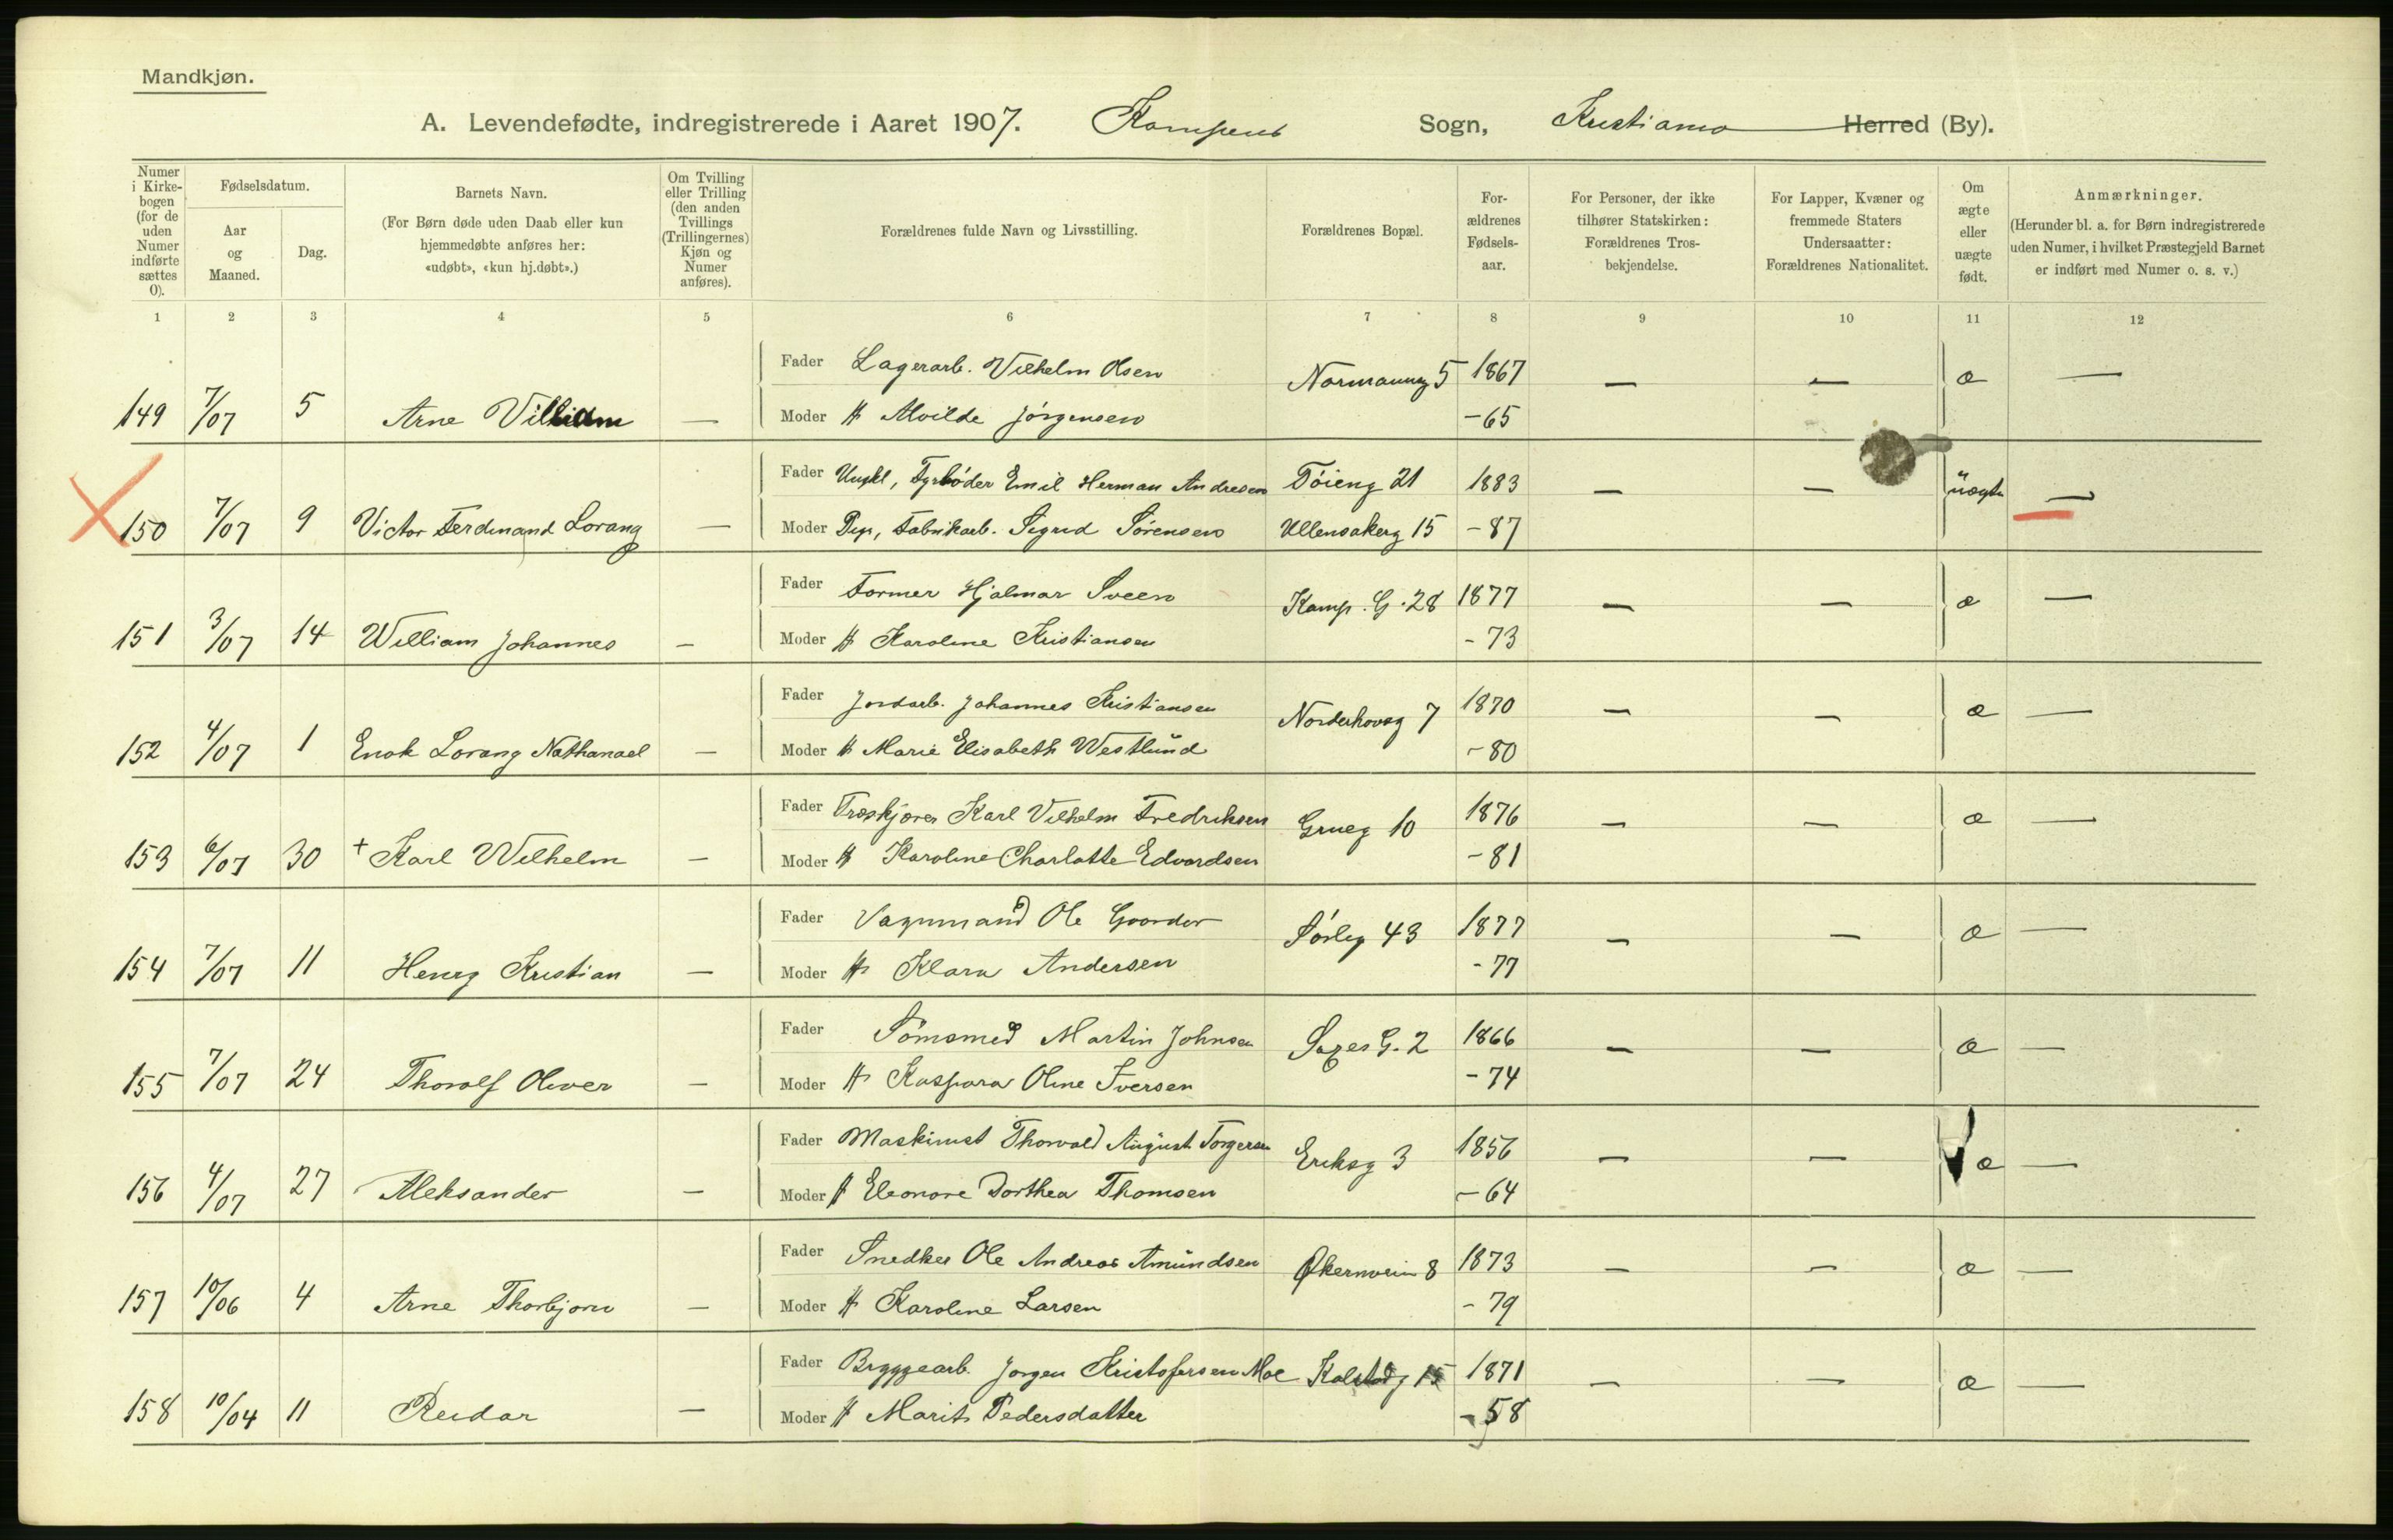 Mandkjøn.
A. Levendefødte, indregistrerede i Aaret 1907. Kampens Sogn, Kristiania Herred (By).
Numer i Kirkebogen (for de uden Numer indførte sættes 0).
Fødselsdatum.
Aar og Maaned.
Dag.
Barnets Navn.
(For Børn døde uden Daab eller kun hjemmedøbte anføres her: «udøbt», «kun hj.døbt».)
Om Tvilling eller Trilling (den anden Tvillings (Trillingernes) Kjøn og Numer anføres).
Forældrenes fulde Navn og Livsstilling.
Forældrenes Bopæl.
For-ældrenes Fødsels-aar.
For Personer, der ikke tilhører Statskirken: Forældrenes Tros-bekjendelse.
For Lapper, Kvæner og fremmede Staters Undersaatter: Forældrenes Nationalitet.
Om ægte eller uægte født.
Anmærkninger.
(Herunder bl. a. for Børn indregistrerede uden Numer, i hvilket Præstegjeld Barnet er indført med Numer o. s. v.)
1 2 3 4 5 6 7 8 9 10 11 12
Fader Lagerarb. Vilhelm Olsen Normanng 5 1867 — — æ —
149 7/07 5 Arne William — Moder H Alvilde Jörgensen - 65
Fader Ungkl, Fyrböder Emil Herman Andresen Töieng 21 1883 — — uægte —
150 7/07 9 Victor Ferdinand Lorang — Moder Pige, Fabrikarb. Sigrid Sörensen Ullensakerg 15 - 87
Fader Former Hjalmar Sveen Kamp. G. 28 1877 — — æ —
151 3/07 14 William Johannes — Moder H Karoline Kristiansen - 73
Fader Jordarb. Johannes Kristiansen Norderhovsg 7 1870 — — æ —
152 4/07 1 Enok Lorang Nathanael — Moder H Marie Elisabeth Westlund - 80
Fader Træskjærer Karl Vilhelm Fredriksen Grueg 10 1876 — — æ —
153 6/07 30 + Karl Wilhelm — Moder H Karoline Charlotte Edvardsen - 81
Fader Vognmand Ole Gaarder Sörlig 43 1877 — — æ —
154 7/07 11 Henry Kristian — Moder H Klara Andersen - 77
Fader Sömsmed Martin Johnsen Saxes G. 2 1866 — — æ —
155 7/07 24 Thorolf Oliver — Moder H Kaspara Oline Iversen - 74
Fader Maskinist Thorvald August Torgersen Eriksg 3 1856 — — æ —
156 4/07 27 Aleksander — Moder H Eleonore Dorthea Thomsen - 64
Fader Snedker Ole Andreas Amundsen Økernvein 8 1873 — — æ —
157 10/06 4 Arne Thorbjørn — Moder H Karoline Larsen - 79
Fader Bryggearb. Jørgen Kristofersen Moe Kalstadg 15 1871 — — æ —
158 10/04 11 Reidar — Moder H Marit Pedersdatter - 58